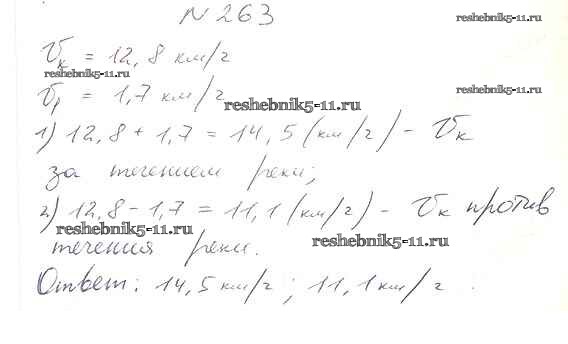 N 263
reshebnik5-11.ru
Vк = 12,8 км/г
reshebnik5-11.ru
reshebnik5-11.ru
Vр = 1,7 км/г
reshebnik5-11.ru
1) 12,8 + 1,7 = 14,5 (км/г) - Vк
за течением реки;
2) 12,8 - 1,7 = 11,1 (км/г) - Vк против
reshebnik5-11.ru
течения реки.
reshebnik5-11.ru
Ответ: 14,5 км/г; 11,1 км/г.